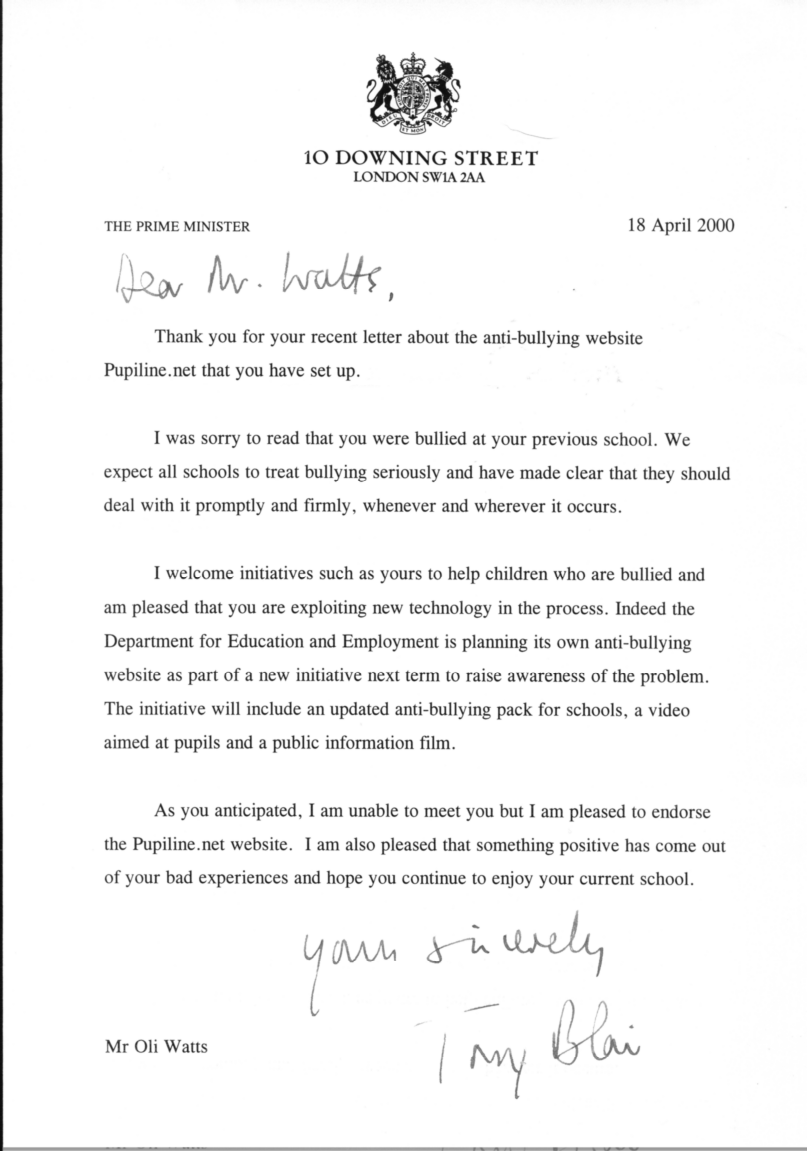 10 DOWNING STREET
LONDON SW1A 2AA
THE PRIME MINISTER
18 April 2000
Dear Mr. Watts,
Thank you for your recent letter about the anti-bullying website
Pupiline.net that you have set up.
I was sorry to read that you were bullied at your previous school. We
expect all schools to treat bullying seriously and have made clear that they should
deal with it promptly and firmly, whenever and wherever it occurs.
I welcome initiatives such as yours to help children who are bullied and
am pleased that you are exploiting new technology in the process. Indeed the
Department for Education and Employment is planning its own anti-bullying
website as part of a new initiative next term to raise awareness of the problem.
The initiative will include an updated anti-bullying pack for schools, a video
aimed at pupils and a public information film.
As you anticipated, I am unable to meet you but I am pleased to endorse
the Pupiline.net website. I am also pleased that something positive has come out
of your bad experiences and hope you continue to enjoy your current school.
yours sincerely
Tony Blair
Mr Oli Watts